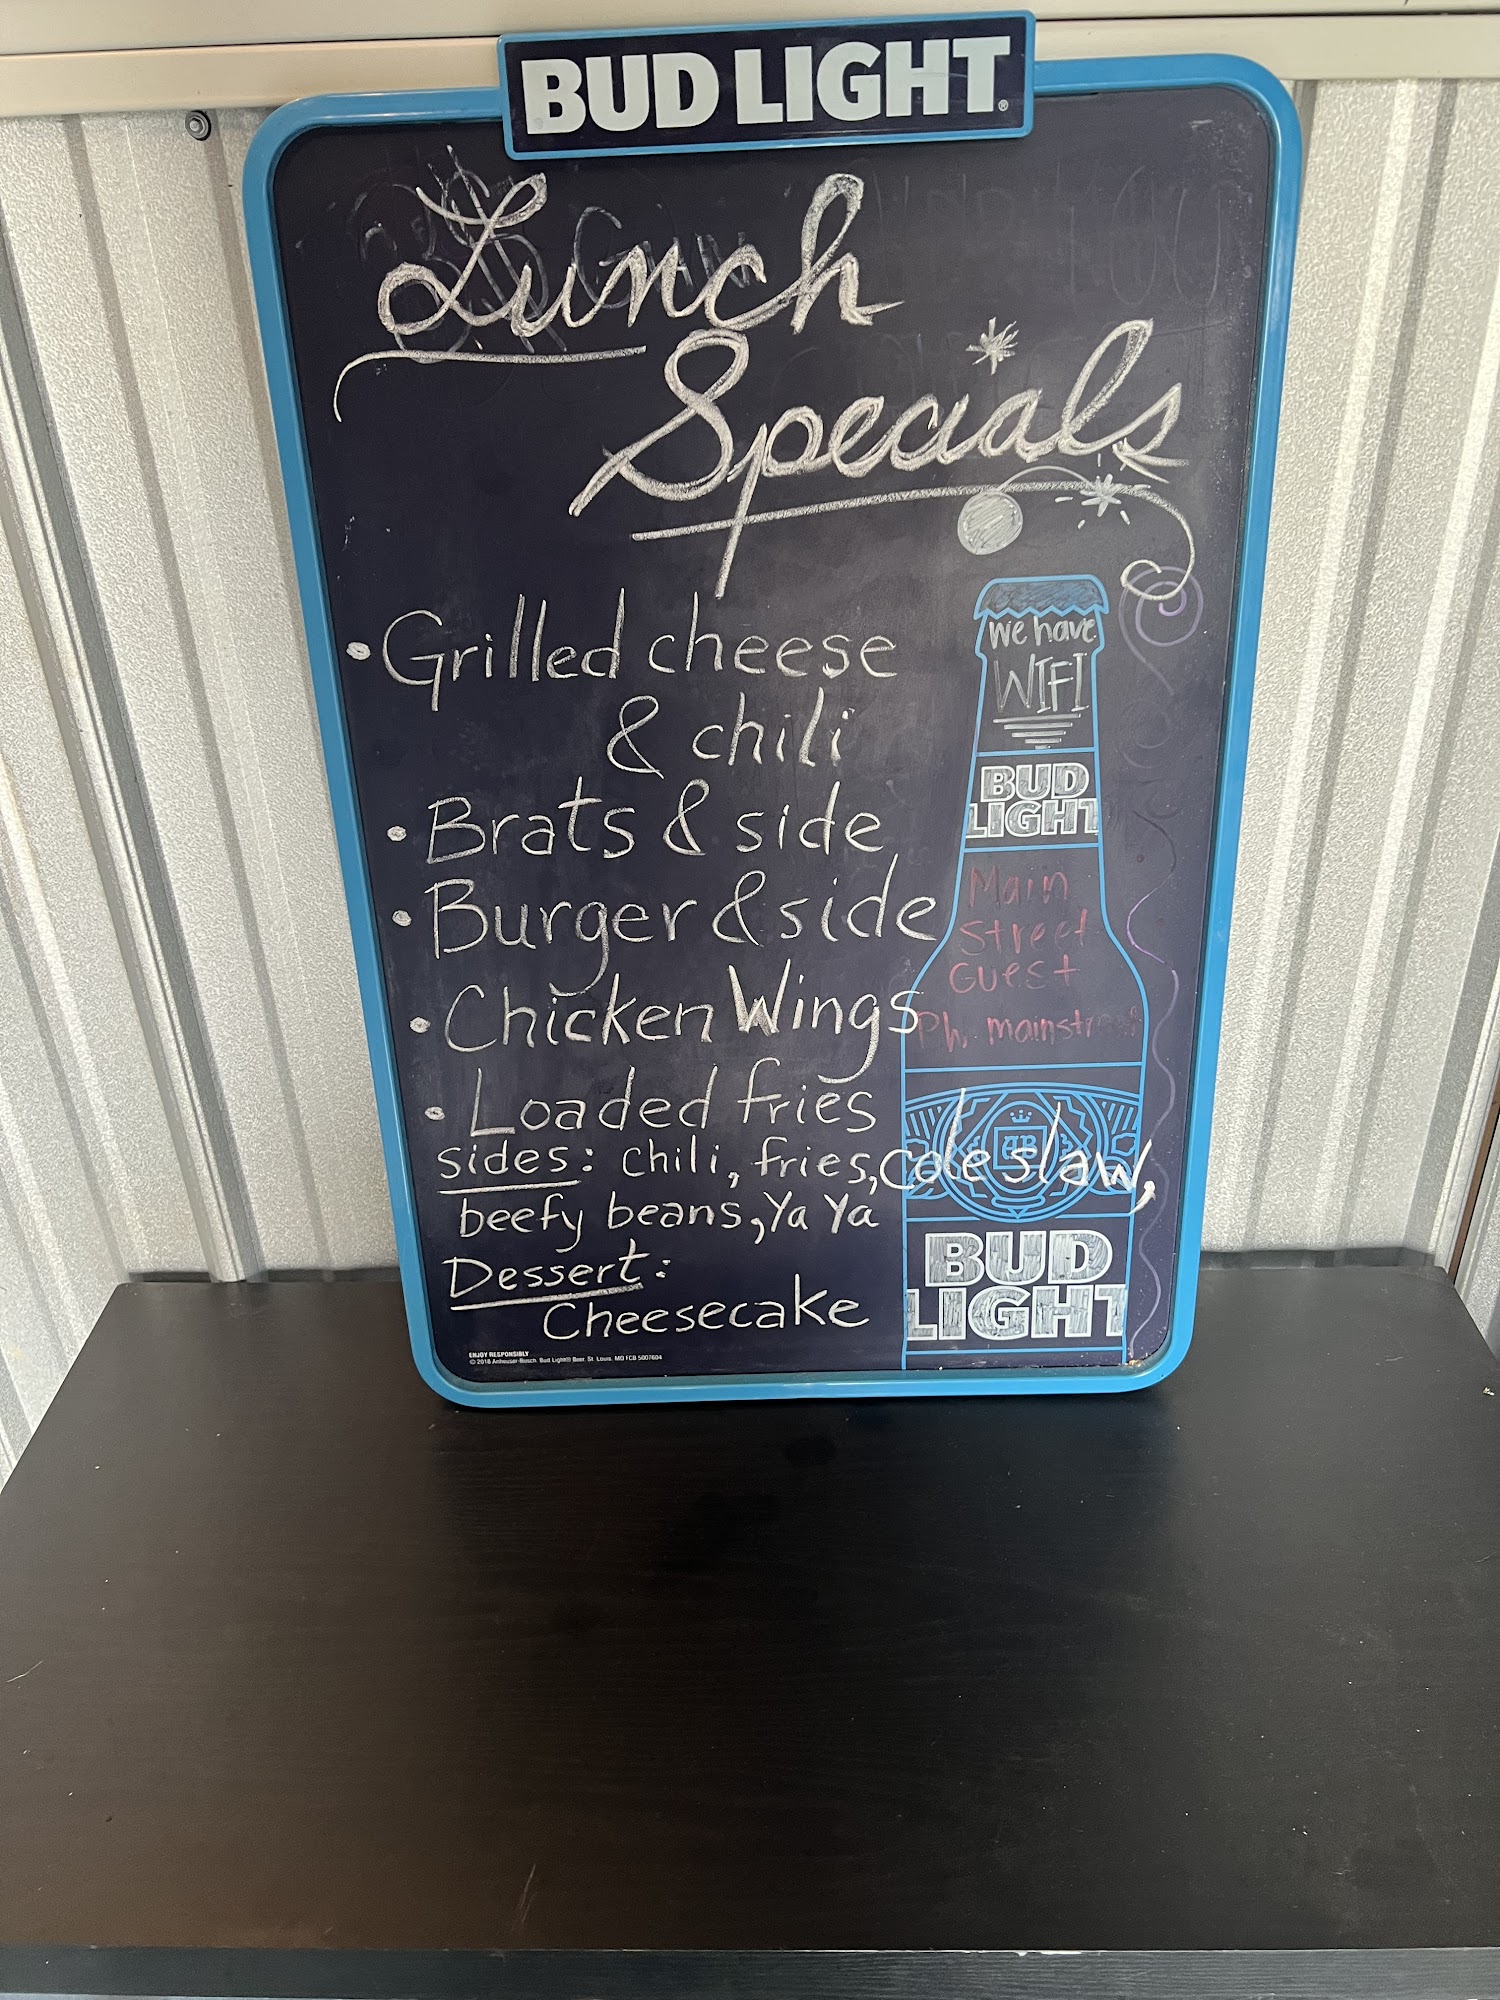 BUD LIGHT®
Lunch
Specials
• Grilled cheese
& chili
• Brats & side
• Burger & side
• Chicken Wings
• Loaded fries
sides: chili, fries, coleslaw,
beefy beans, Ya Ya
Dessert:
Cheesecake
We have
WIFI
BUD
LIGHT
Main
Street
Guest
Ph. mainstr
AB
BUD
LIGHT
ENJOY RESPONSIBLY
© 2018 Anheuser-Busch, Bud Light® Beer, St. Louis, MO FCB 5007604